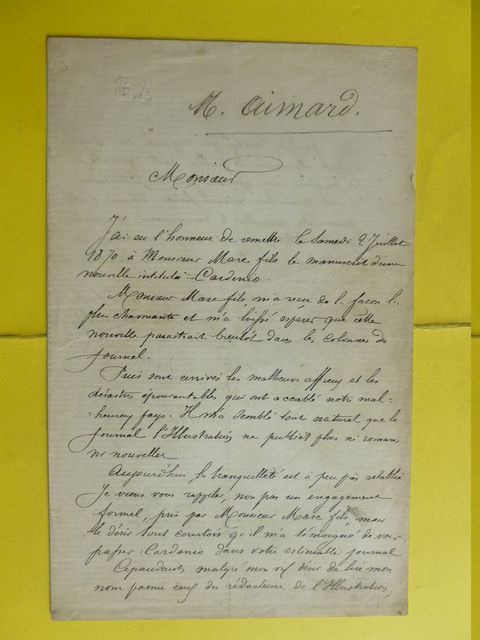 G. A.
M. Aimard.
Monsieur
J'ai eu l'honneur de remettre le Samedi 2 Juillet
1870 à Monsieur Marc fils le manuscrit d'une
nouvelle intitulée: Cardenio.
Monsieur Marc fils, m'a reçu de la façon la
plus charmante et m'a laissé espérer que cette
nouvelle paraîtrait bientôt dans les colonnes du
Journal.
Puis sont arrivés les malheurs affreux et les
désastres épouvantables qui ont accablé notre mal-
heureux pays. Il m'a semblé tout naturel que le
Journal l'Illustration ne publiat plus ni romans
ni nouvelles
Aujourd'hui la tranquillité est à peu près rétablie
Je viens vous rappeler, non pas un engagement
formel, pris par Monsieur Marc fils, mais
le désir tout courtois qu'il m'a témoigné de voir
passer Cardenio dans votre estimable journal
Cependant, malgré mon vif désir de lire mon
nom parmi ceux des rédacteurs de l'Illustration,